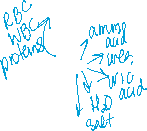 RBC
WBC
proteins
amino
acid
urea
uric
acid
H2O
salt